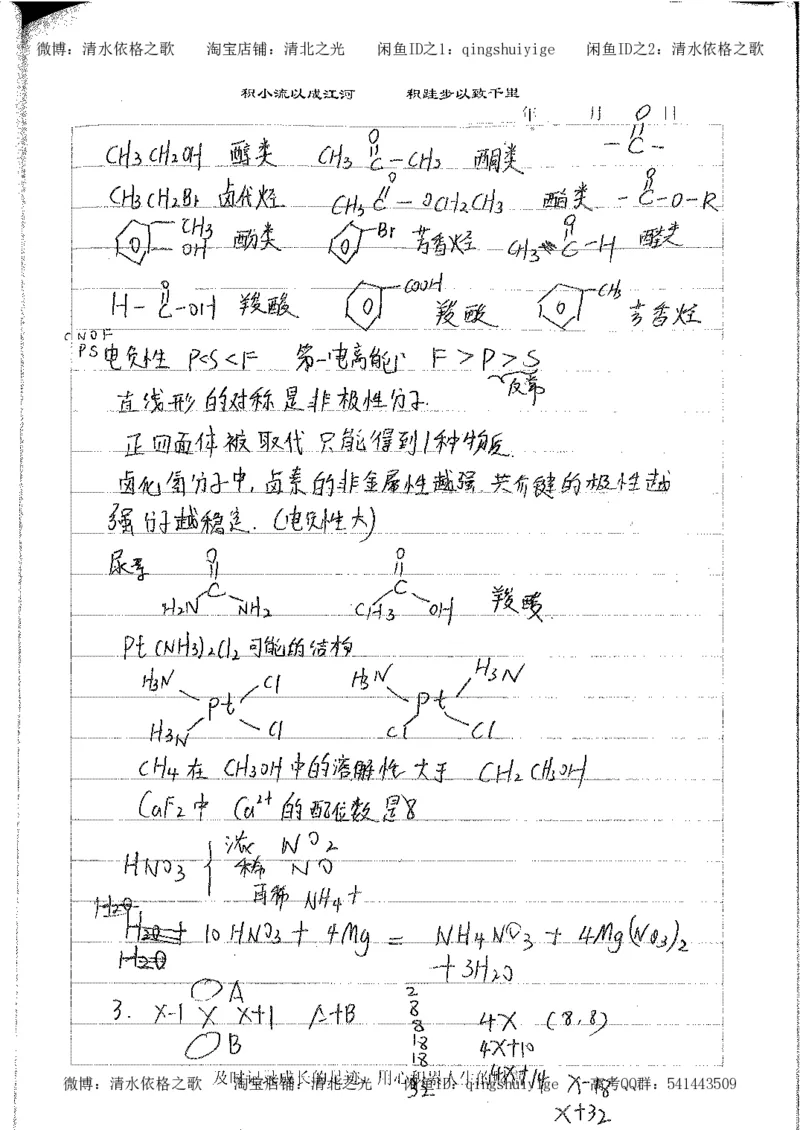 微博：清水依格之歌 淘宝店铺：清北之光 闲鱼ID之1：qingshuiyige 闲鱼ID之2：清水依格之歌
积小流以成江河 积跬步以致千里
年 月 日
O
-C-
CH3CH2OH 醇类 CH3 C-CH3 酮类
O
CH3CH2Br 卤代烃 CH3C-OCH2CH3 酯类 -C-O-R
O O
CH3 OH 酚类 Br 芳香烃 CH3 C-H 醛类
O
H-C-OH 羧酸 COOH 羧酸 CH3 芳香烃
O
C N O F
P S 电负性 P<S<F 第一电离能 F>P>S
反常
直线形的对称是非极性分子.
正四面体被取代只能得到1种物质
卤化氢分子中，卤素的非金属性越强 共价键的极性越
强 分子越稳定.（电负性大）
尿素 O O
C C
H2N NH2 CH3 OH 羧酸
Pt(NH3)2Cl2可能的结构
H3N Cl H3N H3N
Pt Pt
H3N Cl Cl Cl
CH4在 CH3OH中的溶解性 大于 CH2CH3OH
CaF2中 Ca2+的配位数是8
浓 NO2
HNO3 稀 NO
NH4+
H2O
H2O + 10HNO3 + 4Mg = NH4NO3 + 4Mg(NO3)2
H2O + 3H2O
A 2
3. X-1 X X+1 A+B 8
8 4X (8,8)
B 18 4X+10
18 4X+14
32 X-18
X+32
及时记录成长的足迹，用心积累人生的
微博：清水依格之歌 淘宝店铺：清北之光 闲鱼ID：qingshuiyige 高考QQ群：541443509